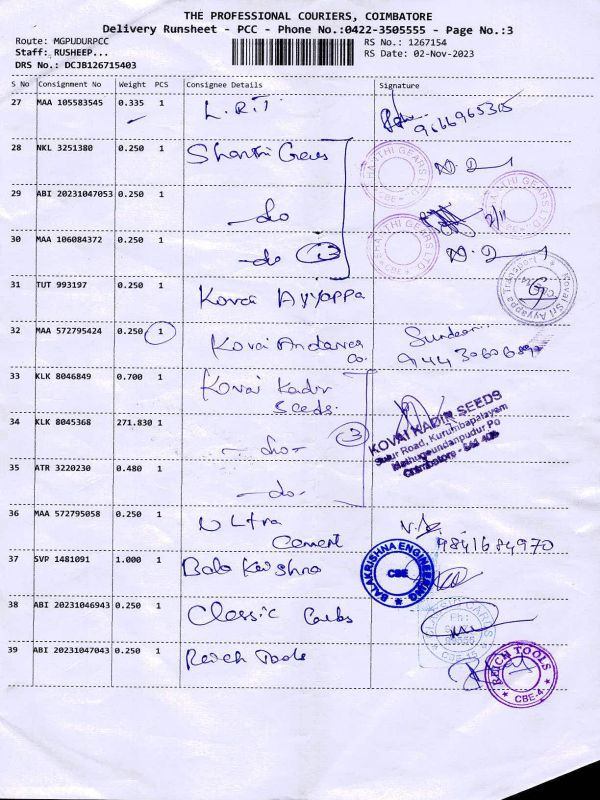 THE PROFESSIONAL COURIERS, COIMBATORE
Delivery Runsheet - PCC - Phone No.:0422-3505555 - Page No.:3
Route: MGPUDURPCC
Staff: RUSHEEP...
DRS No.: DCJB126715403
RS No.: 1267154
RS Date: 02-Nov-2023
S No Consignment No Weight PCS Consignee Details Signature
27 MAA 105583545 0.335 1 L.R.T. 9566965315
28 NKL 3251380 0.250 1 Shanthi Gears
29 ABI 20231047053 0.250 1 -do 2/11
30 MAA 106084372 0.250 1 -do
31 TUT 993197 0.250 1 Kovai Ayyappa
32 MAA 572795424 0.250 1 Kovai Andavar Co. Sundar
33 KLK 8046849 0.700 1 Kovai Kadir Seeds.
34 KLK 8045368 271.830 1 -do- 3
KOVAI KADIR SEEDS
Sulur Road, Kurumbapalayam
Muthugoundanpudur Po
Coimbatore - 641 406
35 ATR 3220230 0.480 1 -do-
36 MAA 572795058 0.250 1 Ultra Cement 9841684970
37 SVP 1481091 1.000 1 Bala Krishna
BALAKRISHNA ENGINEERING
CBE
38 ABI 20231046943 0.250 1 Classic Carbs
39 ABI 20231047043 0.250 1 Reich Tools
REICH TOOLS
CBE-4